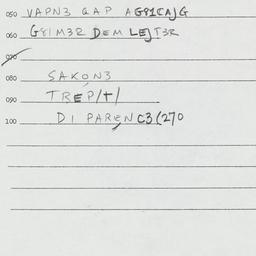 050 VAPN3 GAP AG81CAJG
060 G81M3R DEM LEJT3R
070
080 SAKON3
090 TREP/T/
100 DI PARENC3(270